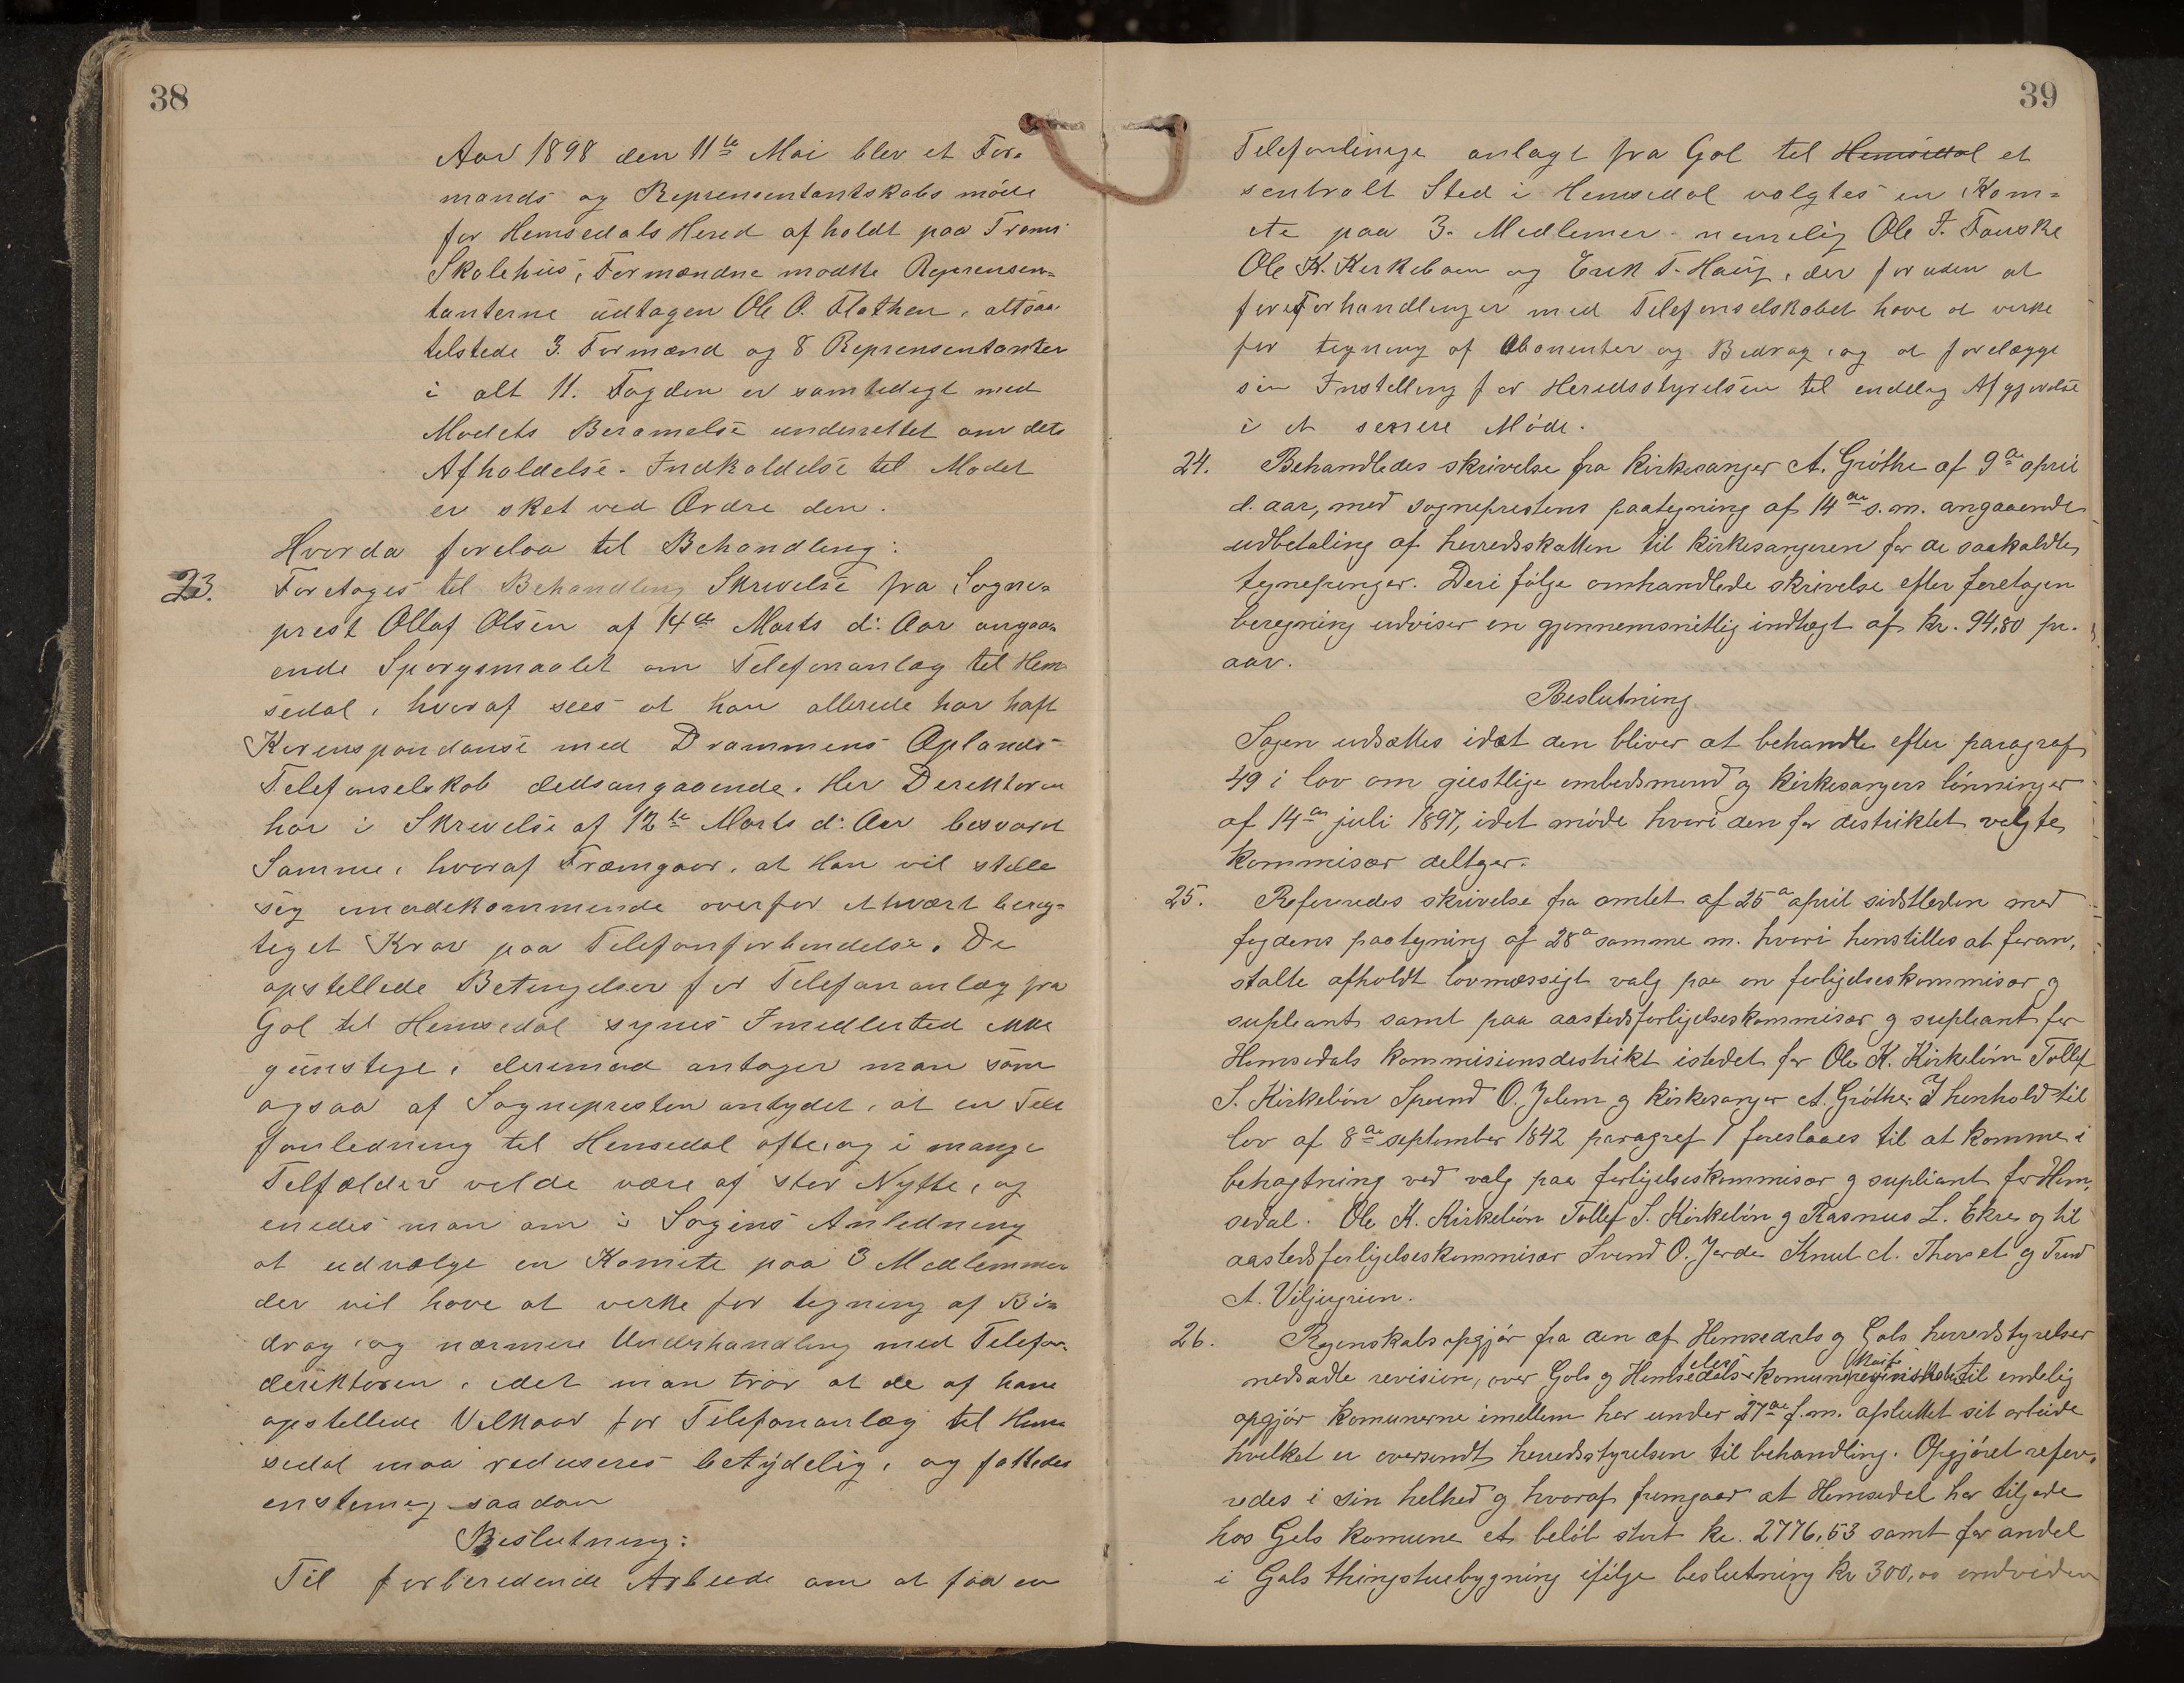 38
Aar 1898 den 11te Mai blev et For-
mands og Reprensentantskabs møde
for Hemsedals Hered afholdt paa Trams
Skolehus, Formændne mødte Reprensen-
tanterne udtagen Ole O. Flathen, altsaa
telstede 3. Formænd og 8 Reprensentanter
i alt 11. Fogden er samtedigt med
Mødets Beramelse underrettet om dets
Afholdelse. Indkaldelse til Mødet
er sket ved Ordre den.
Hvorda forelaa til Behandling:
23. Foretoges til Behandling Skrivelse fra Sogne-
prest Ollaf Olsen af 14de Marts d: Aar angaa-
ende Spørgsmaalet om Telefonanlæg til Hem-
sedal, hvoraf sees at han allerede har haft
Korenspondanse med Drammens Oplands
Telefonselskab dedsangaaende. Her Derektøren
har i Skrivelse af 12te Marts d: Aar besvaret
Samme, hvoraf Fræmgaar, at Han vil stelle
sig imødekommende overfor ethvært bereg-
teget Krav paa Telefonforbindelse. De
opstellede Betingelser for Telefonanlæg fra
Gol til Hemsedal synes Imedlertid ikke
gunstege, deremod antager man som
ogsaa af Sognepresten antydet, at en Tele
fonledning til Hemsedal ofte, og i mange
Telfælder velde være af stor Nytte, og
enedes man om i Sagens Anledning
at udvælge en Komite paa 3 Medlemmer
der vil have at verke for tegning af Bi-
drag, og nærmere Underhandling med Telefon-
derektøren, idet man trør at de af ham
opstellede Velkaar for Telefonanlæg til Hem
sedal maa reduseres betydelig, og fattedes
enstemig saadan
Beslutning:
Til forberedende Arbeide om at faa en
39
Telefonlinege anlagt fra Gol til Hemsedal et
sentralt Sted i Hemsedal valgtes en Kom-
ete paa 3. Medlemer nemelig Ole T. Fauske
Ole K. Kirkebøen og Erik T. Haug, der foruden at
føre Forhandlinger med Telefonselskabet have at verke
for tegning af Abonenter og Bedrag, og at forelægge
sin Instelling for Heredsstyrelsen til endelig Afgjørelse
i et senere Møde.
24. Behandledes skrivelse fra kirkesanger A. Grøthe af 9de april
d. aar, med sogneprestens paategning af 14de s.m. angaaende
udbetaling af herredskatten til kirkesangeren for de saakaldte
tegnepenger. Deri følge omhandlede skrivelse efter foretagen
beregning udviser en gjennemsnitlig indtægt af kr. 94,80 pr.
aar.
Beslutning
Sagen udsættes idet den bliver at behandle efter paragraf
49 i lov om giestlige embedsmend og kirkesangers lønninger
af 14de juli 1897, idet møde hvori den for distriktet valgte
kommisær deltger.
25. Refereredes skrivelse fra amtet af 25de april sidstleden med
fogdens paategning af 28de samme m. hvori henstilles at foran-
stalte afholdt lovmæssigt valg paa en forligelseskommisær og
supleant samt paa aastedsforligelseskommisær og supleant for
Hemsedals kommisionsdistrikt istedet for Ole K. Kirkebøn Tollef
S. Kirkebøn Svend O. Jalem og kirkesanger A. Grøthe. I henhold til
lov af 8de september 1842 paragref 1 foreslaaes til at komme i
behagtning ved valg paa forligelseskommisær og supliant for Hem-
sedal. Ole K. Kirkebøn Tollef S. Kirkebøn og Rasmus L. Ekre og til
aastedsforligelseskommisær Svend O. Jorde Knut A. Thorset og Trud
A. Viljugrein.
26. Regnskabsopgjør fra den af Hemsedals og Gols herredstyrelser
nedsadte revision, over Gols og Hemsedals komuneregnskab til endelig
opgjør komunerne imellem har under 27de f.m. afsluttet sit arbeide
hvilket er oversendt herredsstyrelsen til behandling. Opgjøret refer-
redes i sin helhed og hvoraf fremgaar at Hemsedal har tilgode
hos Gols komune et beløb stort kr. 2776,53 samt for andel
i Gols thingstuebygning ifølge beslutning kr 300,00 endvidere